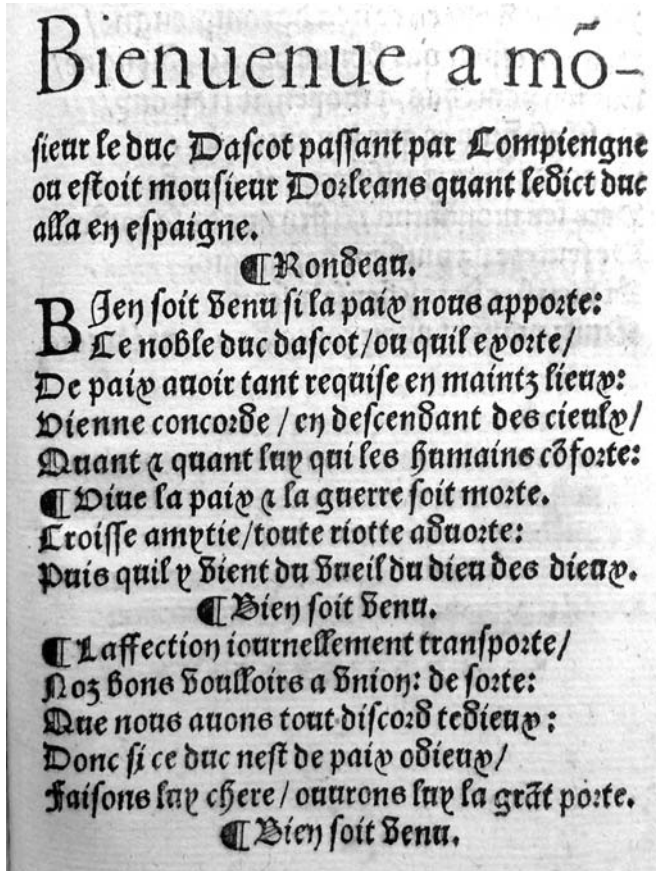 Bienuenue a mõ-
sieur le duc Dascot passant par Compiengne
ou estoit monsieur Dorleans quant ledict duc
alla en espaigne.
¶Rondeau.
BJen soit venu si la paix nous apporte:
Le noble duc dascot/ou quil exorte/
De paix auoir tant requise en maintz lieux:
Vienne concorde / en descendant des cieulx/
Quant ⁊ quant luy qui les humains cõforte:
¶Viue la paix ⁊ la guerre soit morte.
Croisse amytie/toute riotte aduorte:
Puis quil y vient du vueil du dieu des dieux.
¶Bien soit venu.
¶Laffection iournellement transporte/
Noz bons voulloirs a vnion: de sorte:
Que nous auons tout discord tedieux:
Donc si ce duc nest de paix odieux/
Faisons luy chere / ouurons luy la grãt porte.
¶Bien soit venu.